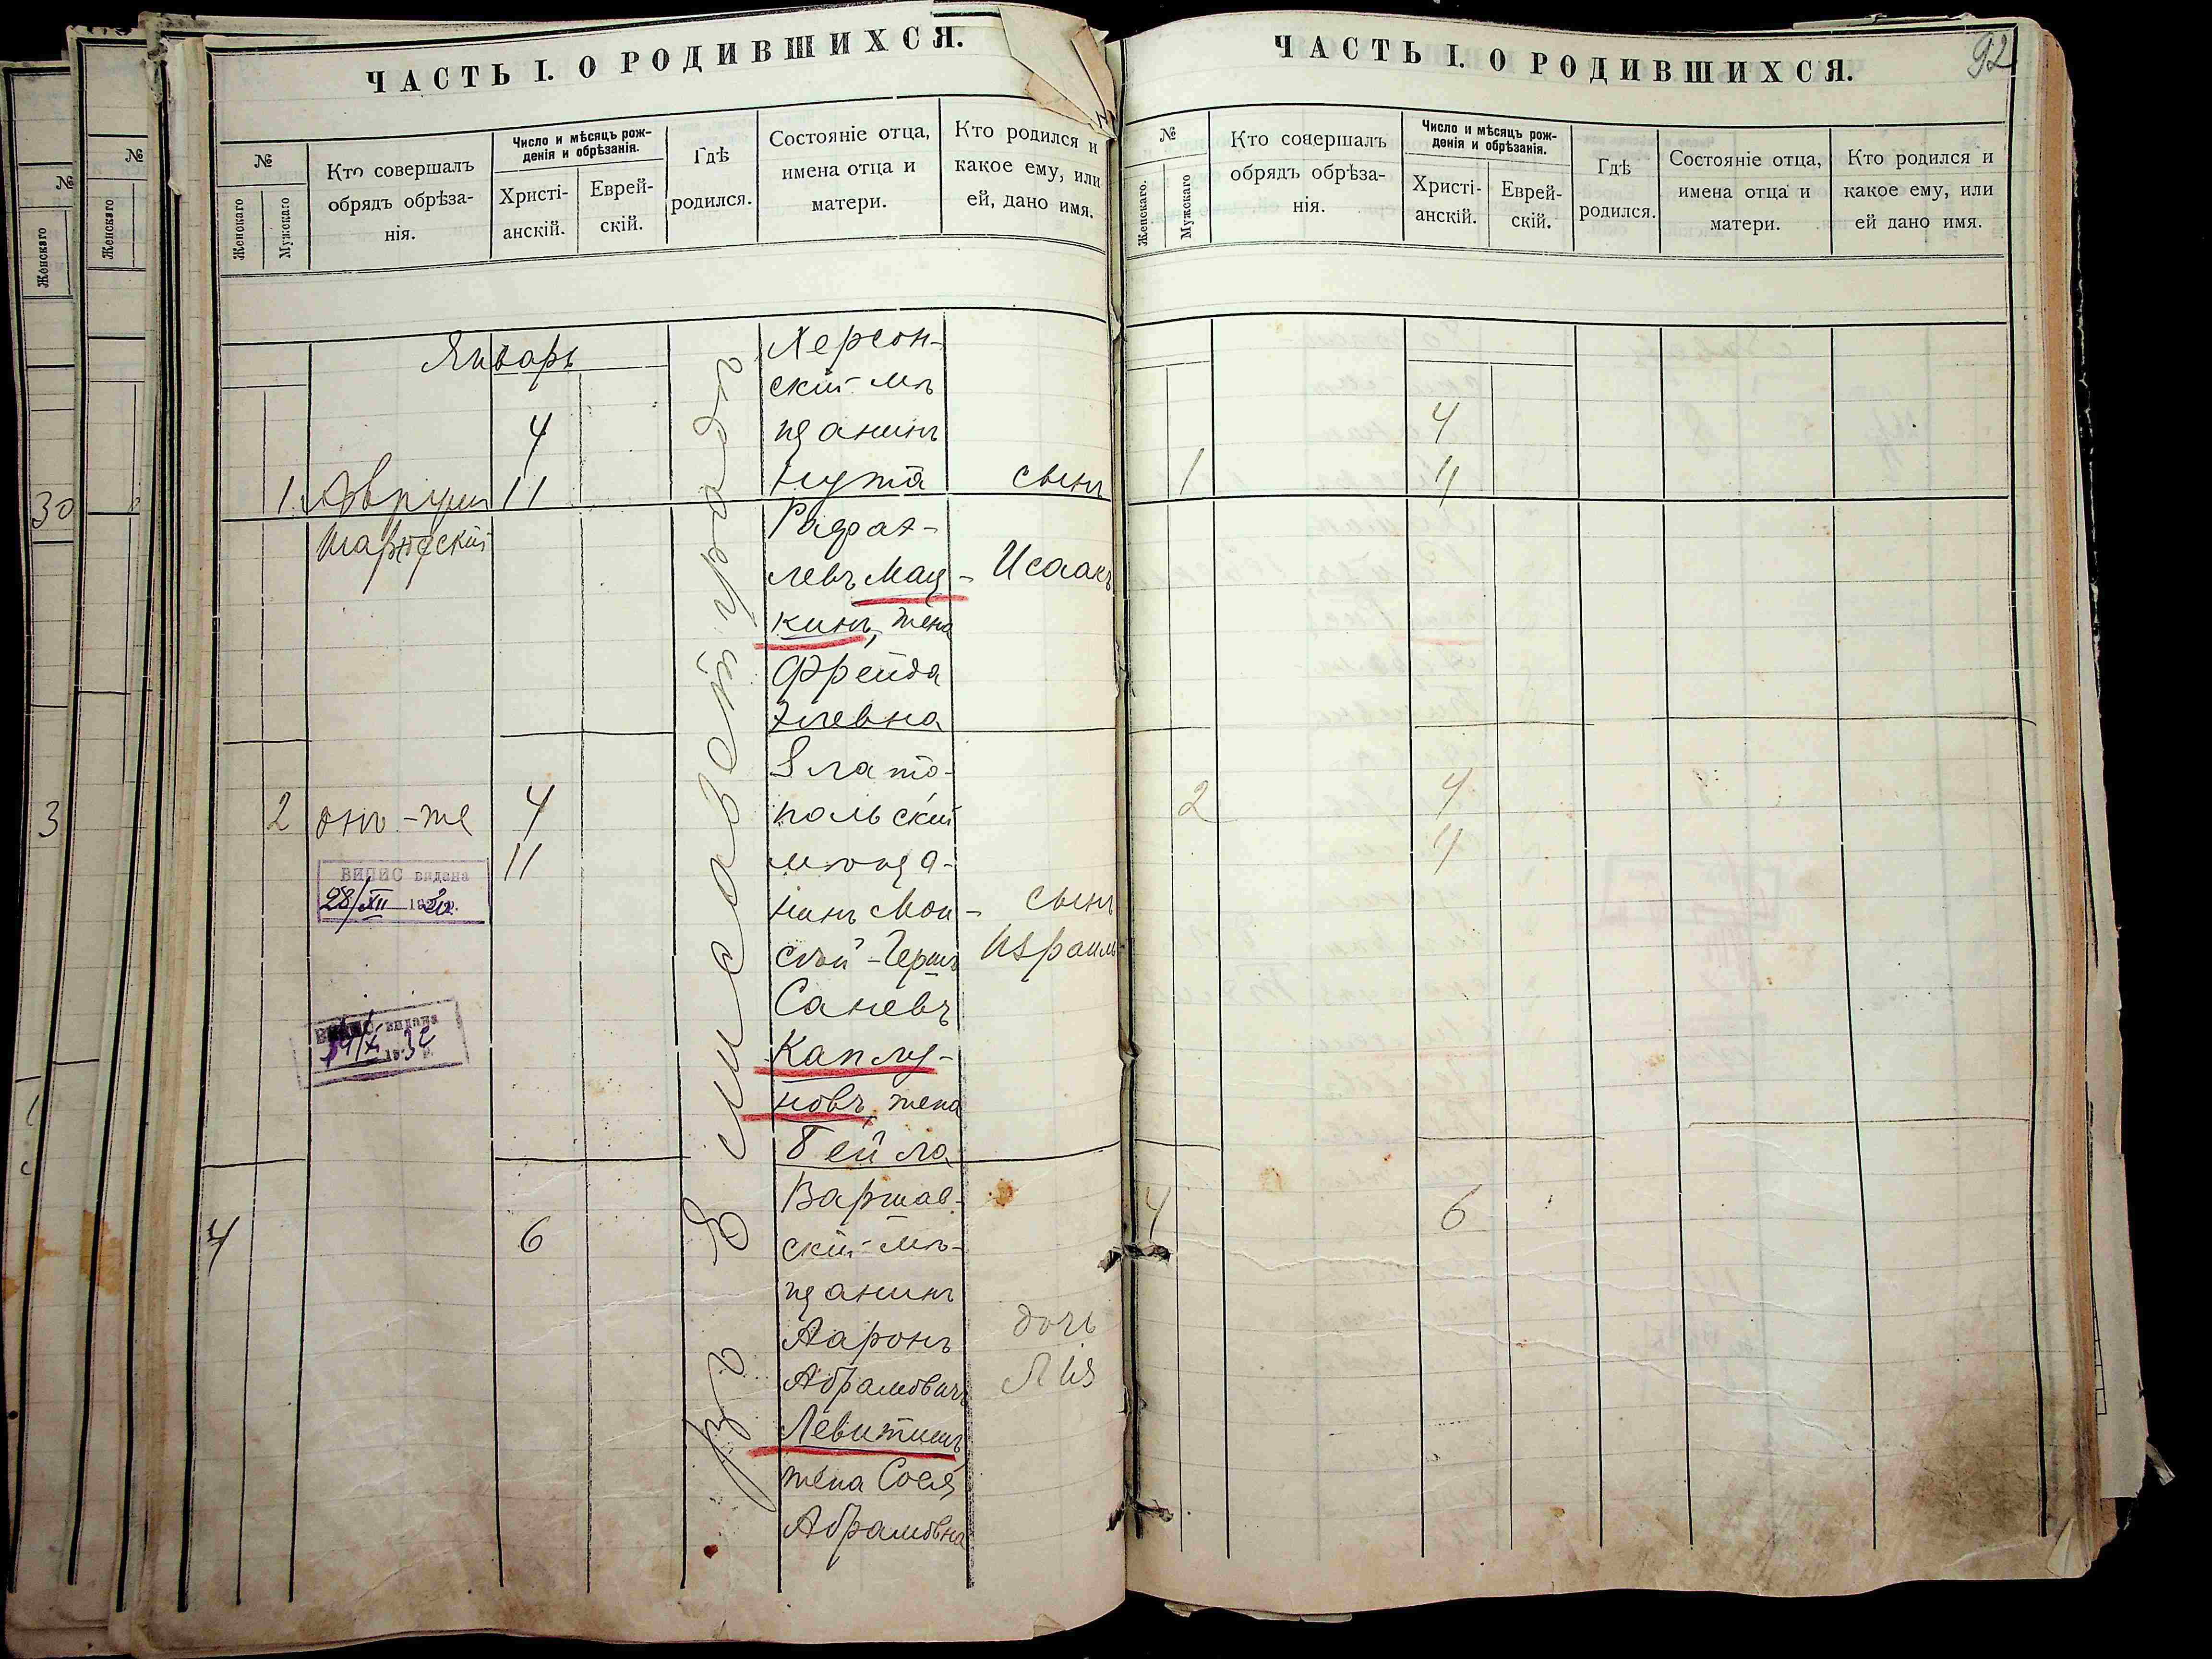 ЧАСТЬ I. О РОДИВШИХСЯ.
№
Женскаго
Мужскаго
Кто совершалъ
обрядъ обрѣза-
нія.
Число и мѣсяцъ рож-
денія и обрѣзанія.
Христі-
анскій.
Еврей-
скій.
Гдѣ
родился.
Состояніе отца,
имена отца и
матери.
Кто родился и
какое ему, или
ей, дано имя.
Январь
1
4
11
въ Елисаветградѣ
Херсон-
скій мѣ
щанинъ
Нута
Рафаэ-
левъ Мац-
кинъ, жена
Фрейда
сынъ
Исаакъ
2
онъ-же
4
11
ВИПИС видана
28/XII
ВИПИС видана
Злато-
польскій
мѣща-
нинъ Мои-
сей-Герш
Каплу-
новъ, жена
Бейла
сынъ
Израиль
4
6
Варшав-
скій мѣ-
щанинъ
Ааронъ
Абрамовичъ
Левитинъ
жена Сося
Абрамовна
дочь
Лия
ЧАСТЬ I. О РОДИВШИХСЯ.
92
№
Женскаго.
Мужскаго
Кто совершалъ
обрядъ обрѣза-
нія.
Число и мѣсяцъ рож-
денія и обрѣзанія.
Христі-
анскій.
Еврей-
скій.
Гдѣ
родился.
Состояніе отца,
имена отца и
матери.
Кто родился и
какое ему, или
ей дано имя.
1
4
11
2
4
11
4
6
№
Женскаго
30
3
№
Женскаго